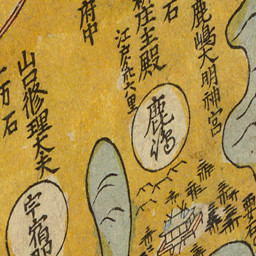 鹿嶋大明神宮
石
新庄主殿
江戸ヨリ廿六里
府中
鹿嶋
山口修理大夫
一万石